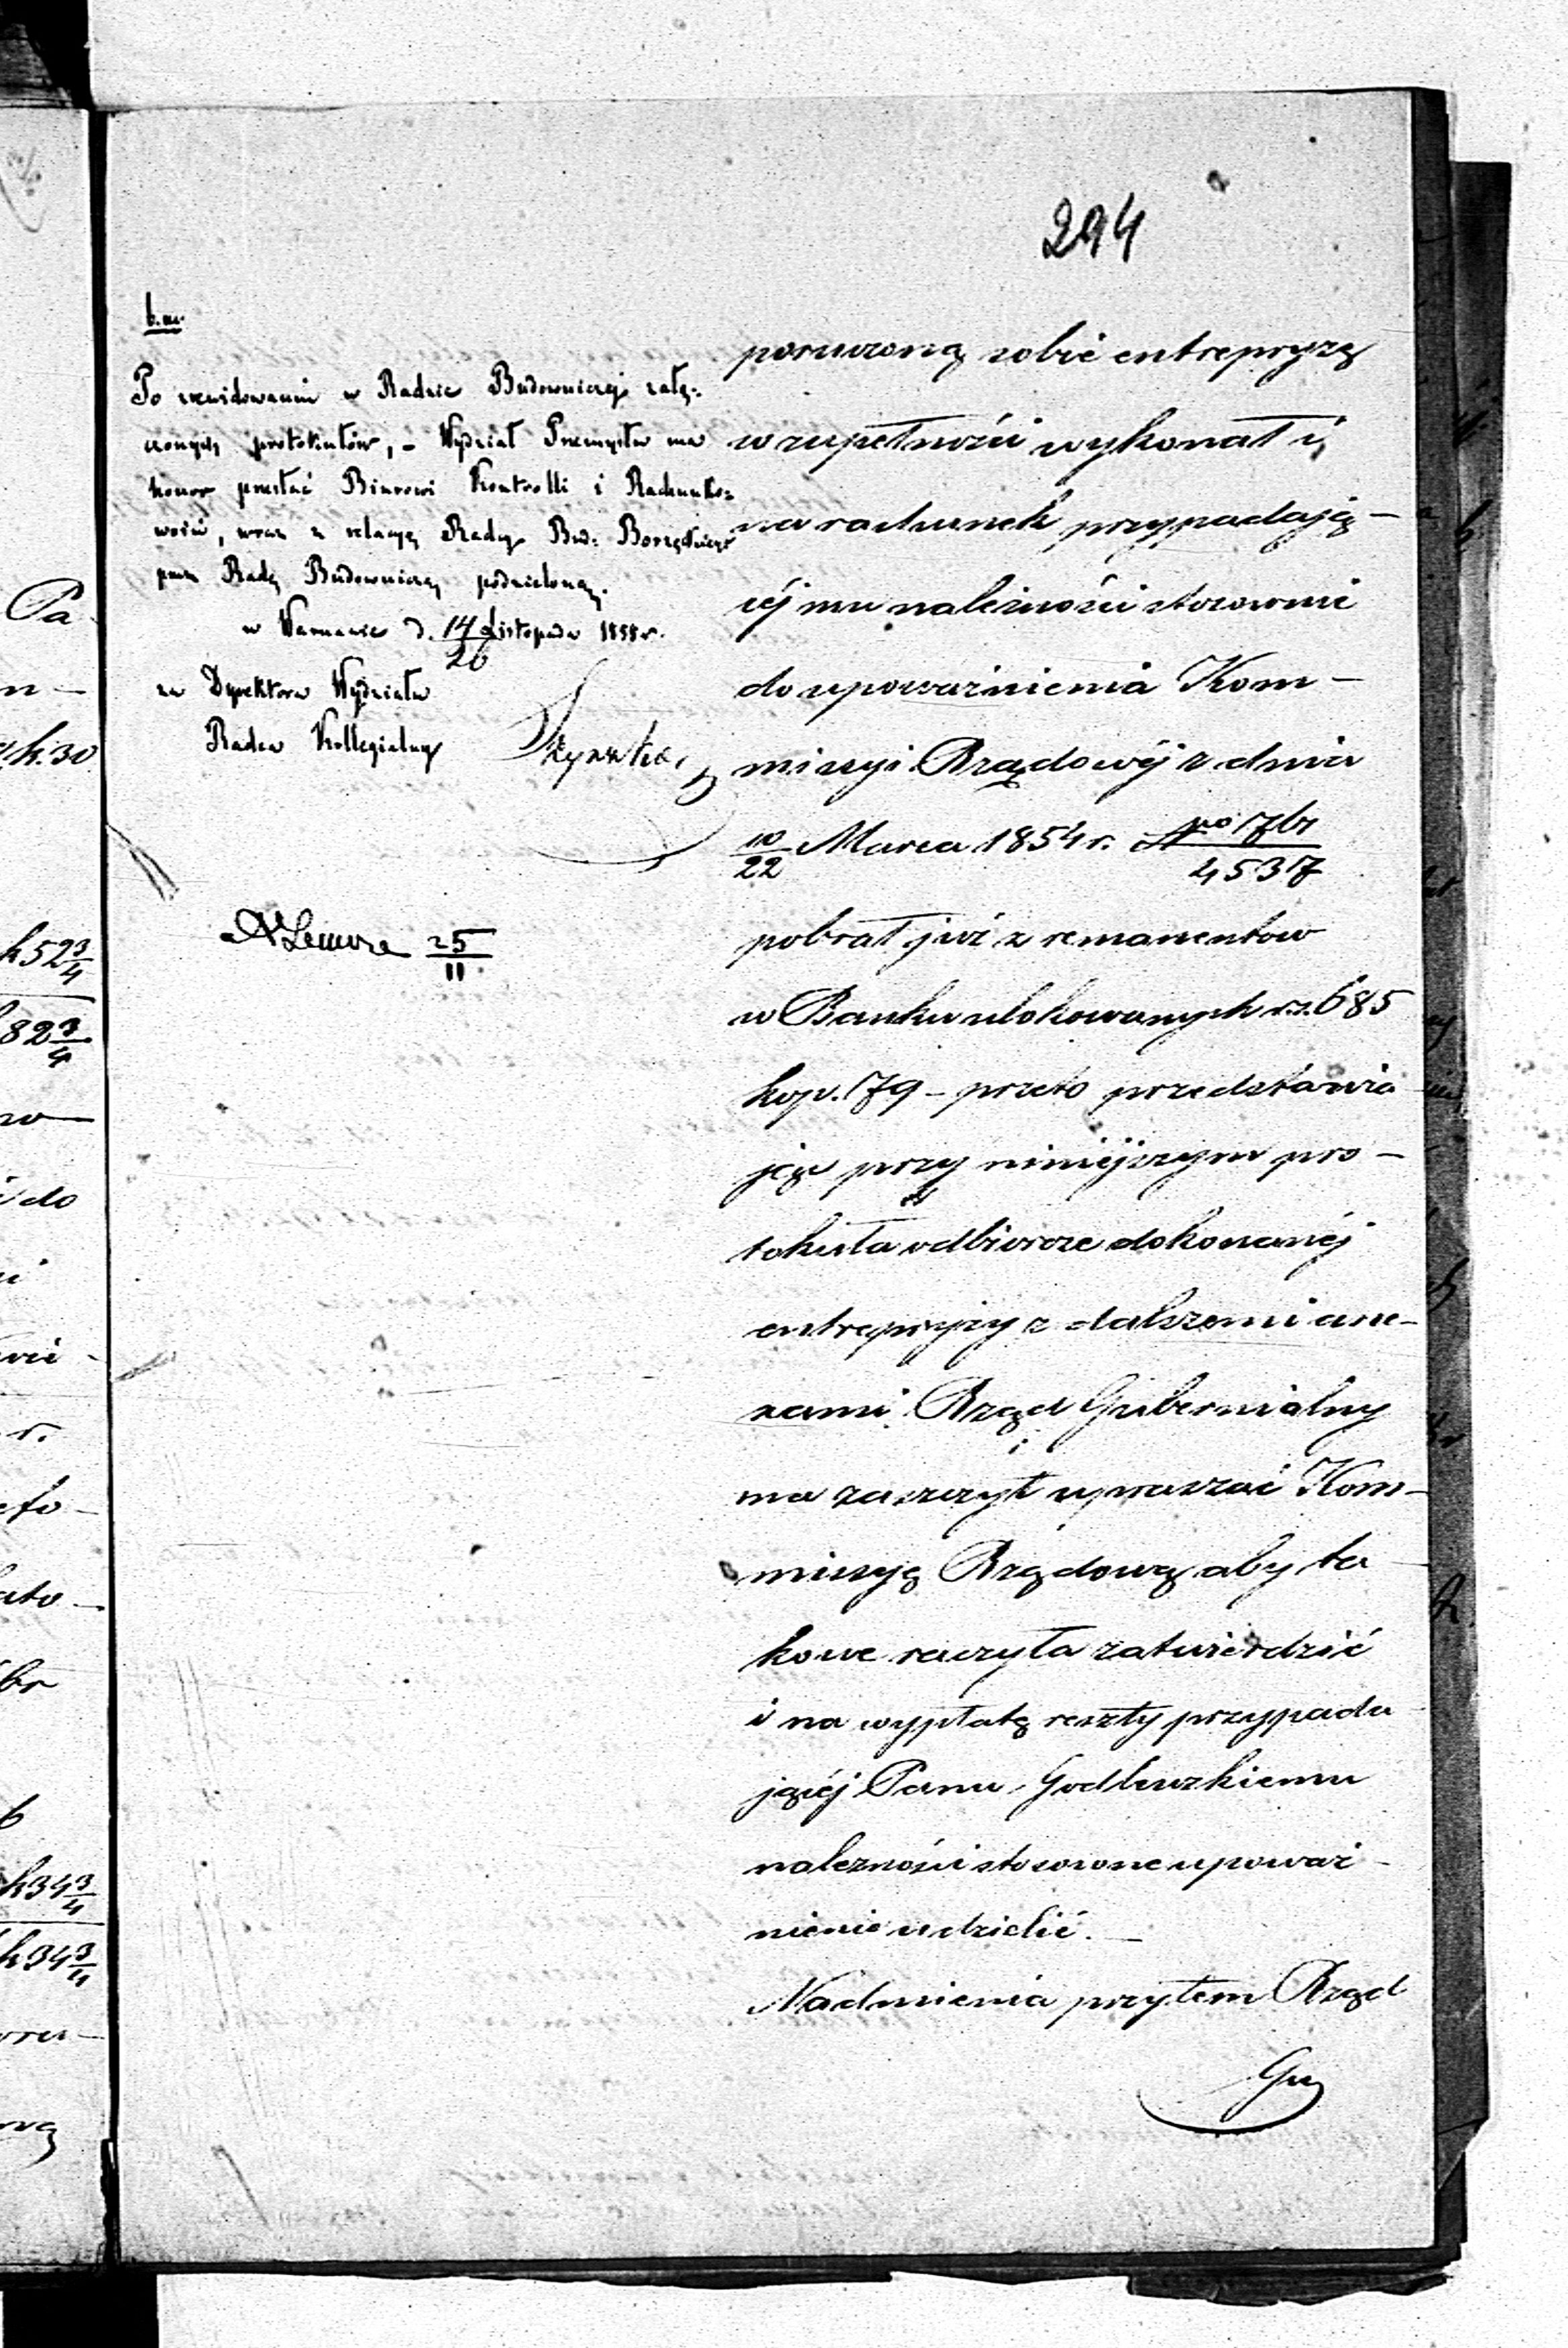 294
b. m.
Po zrewidowaniu w Radzie Budowniczej załą-
czonych protokułów, - Wydział Przemysłu ma
honor przesłać Biurowi Kontrolli i Rachunko-
wości, wraz z relacyą Rady Bud:
przez Radę Budowniczą podzieloną.
w Warszawie d. 14/26 Listopada 185 r.
za Dyrektora Wydziału
Radca Kollegialny
25/11
poruczoną sobie entrepryzę
w zupełności wykonał i,
na rachunek przypadają-
céj mu należności stosownie
do upoważnienia Kom-
missyi Rządowéj z dnia
10/22 Marca 1854 r. No 1761/4537
pobrał już z remanentow
w Banku ulokowanych r.s. 685
kop. 79 - przeto przedstawia
jąc przy niniéjszym pro-
tokuła odbiorcze dokonanéj
entrepryzy z dalszemi ane-
xami Rząd Gubernialny
ma zaszczyt upraszać Kom-
missyą Rządową aby ta
kowe raczyła zatwierdzić
i na wypłatę reszty przypada
jącéj Panu Godlewskiemu
należności stosowne upoważ-
nienie udzielić. -
Nadmienia przytem Rząd
Gu